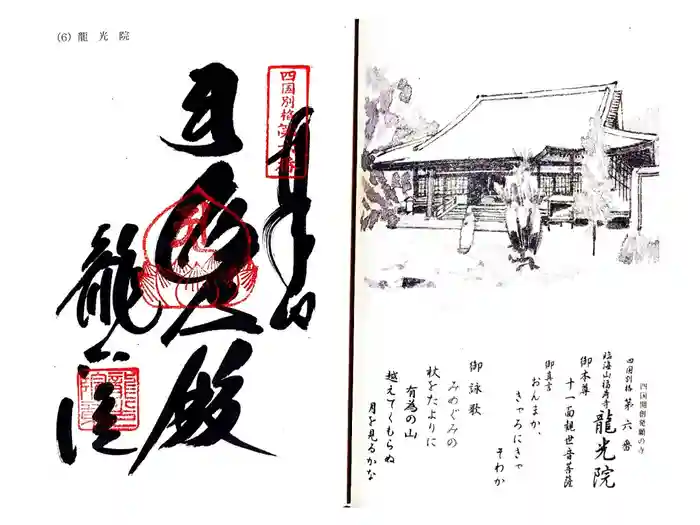 (6) 龍光院
四国別格第六番
奉拝
殿
龍光院
四国開創発願の寺
四国別格 第六番
臨海山福寿寺 龍光院
御本尊
十一面観世音菩薩
御真言
おんまか、
きゃろにきゃ
そわか
御詠歌
みめぐみの
杖をたよりに
有為の山
越えてくもらぬ
月を見るかな